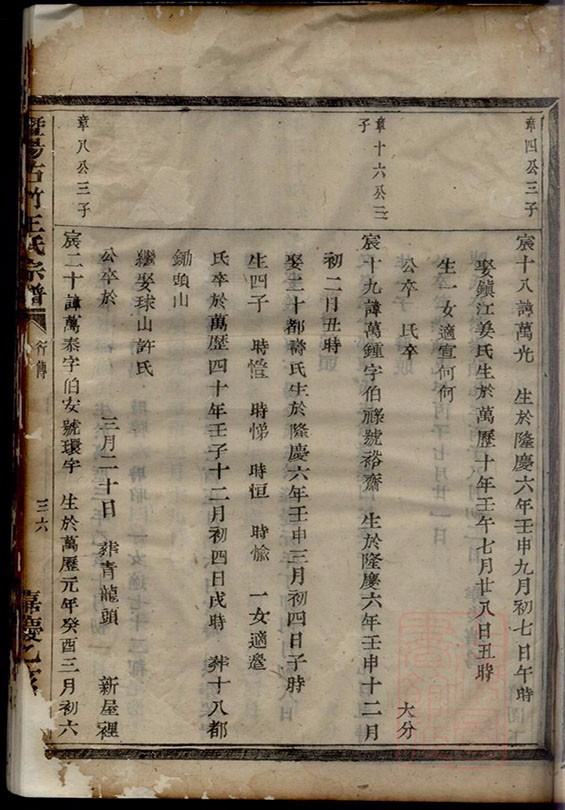 章四公三子
宸十八諱萬光 生於隆慶六年壬申九月初七日午時
娶鎮江姜氏生於萬歷十年壬午七月廿八日丑時
生一女適宣何何
公卒 氏卒 大分
章十六公三
子
宸十九諱萬鍾字伯祿號裕齋 生於隆慶六年壬申十二月
初二月丑時
娶三十都壽氏生於隆慶六年壬申三月初四日子時
生四子 時憕 時悌 時恒 時愉 一女適邊
氏卒於萬歷四十年壬子十二月初四日戌時 葬十八都
鋤頭山
繼娶球山許氏
公卒於 三月二十日 葬青龍頭 新屋裡
章八公三子
宸二十諱萬泰字伯安號環宇 生於萬歷元年癸酉三月初六
暨陽古竹王氏宗譜
行傳
三六
嘉慶乙亥